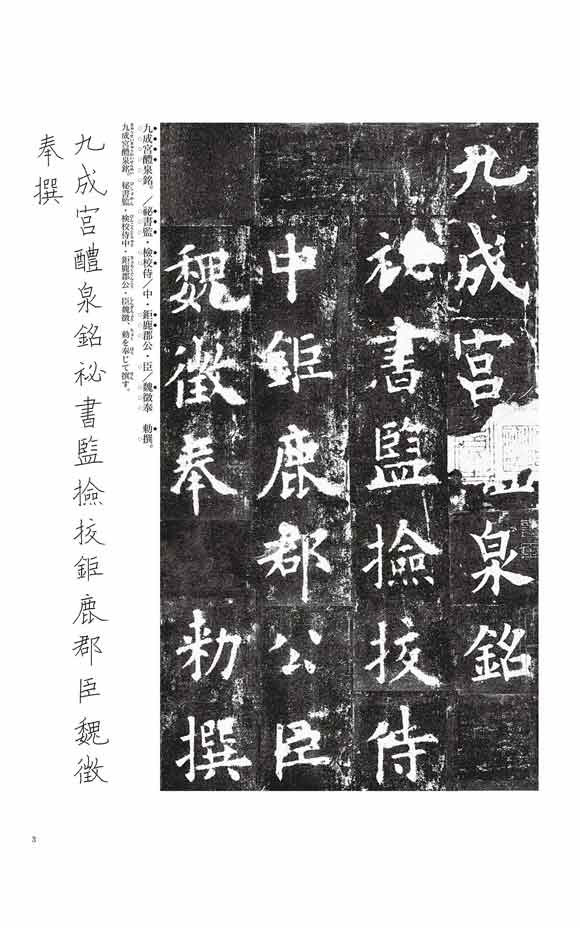 九成宮泉銘
祕書監撿挍侍
中鉅鹿郡公臣
魏徵奉 勑撰
九成宮醴泉銘。／祕書監・檢校侍／中・鉅鹿郡公・臣／魏徵奉 勅撰。
九成宮醴泉銘。秘書監・検校侍中・鉅鹿郡公・臣魏徴、勅を奉じて撰す。
九成宮醴泉銘祕書監撿挍鉅鹿郡臣魏徵
奉撰
3